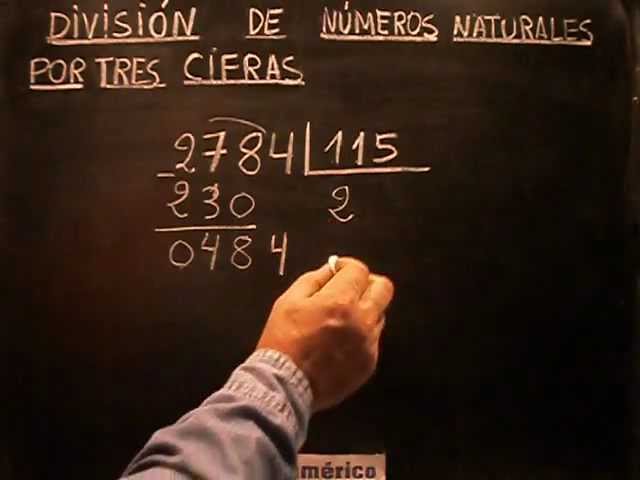 DIVISIÓN DE NÚMEROS NATURALES
POR TRES CIFRAS
2784 115
- 230 2
0484
mérico